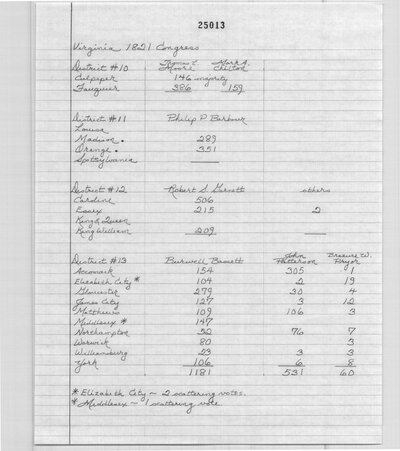 25013
Virginia 1821 Congress
District #10 Thomas L. Moore Mark A. Chilton
Culpeper 146 majority
Fauquier 386 159
District #11 Philip P Barbour
Louisa
Madison • 289
Orange • 351
Spotsylvania
District #12 Robert S. Garnett others
Caroline 506
Essex 215 2
King & Queen
King William 209
District #13 Burwell Bassett John Patterson Brazure W. Pryor
Accomack 154 305 1
Elizabeth City * 104 2 19
Gloucester 279 30 4
James City 127 3 12
Matthews 109 106 3
Middlesex * 147
Northampton 52 76 7
Warwick 80 3
Williamsburg 23 3 3
York 106 6 8
1181 531 60
* Elizabeth City ~ 2 scattering votes.
* Middlesex ~ 1 scattering vote